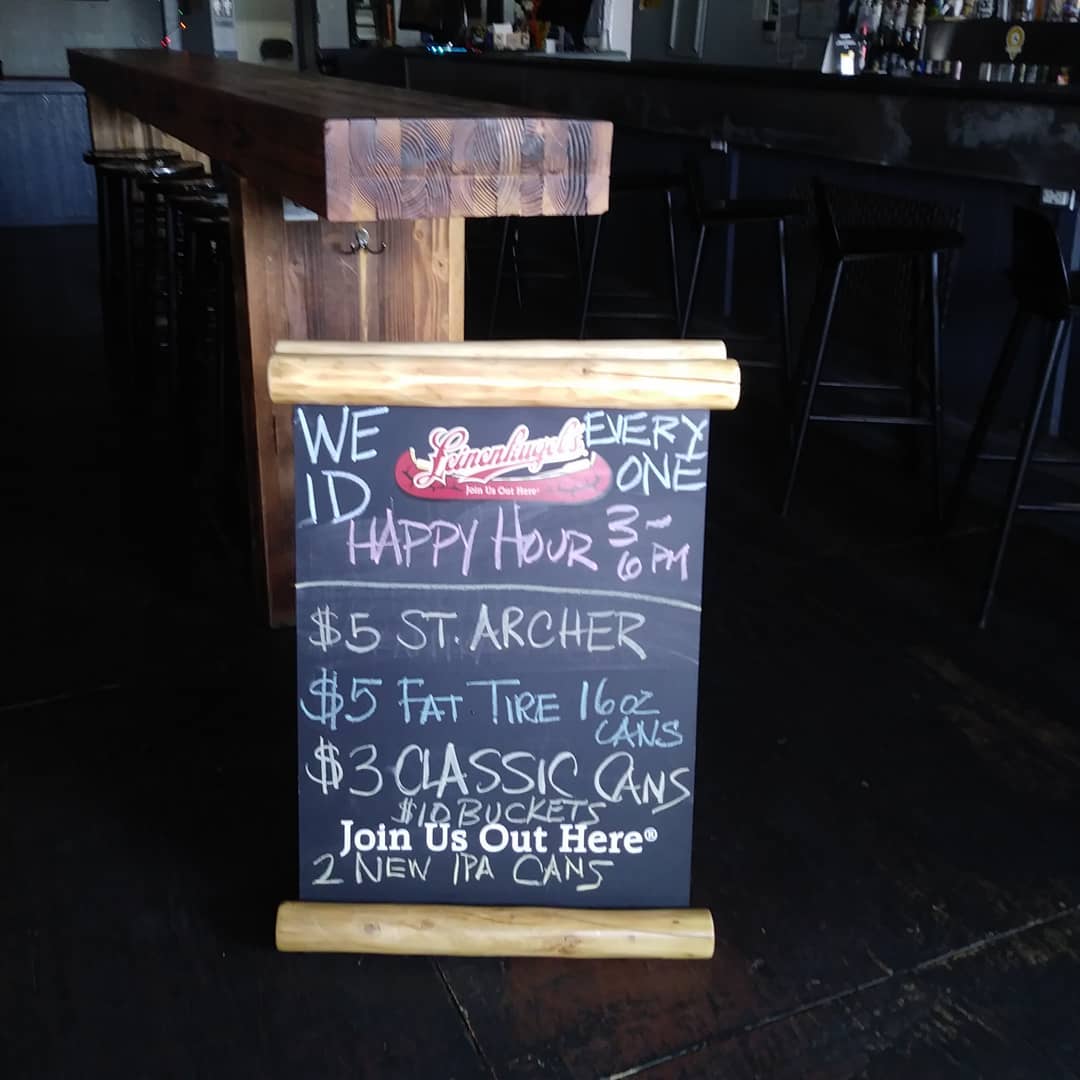 WE
ID
Leinenkugel's
Join Us Out Here®
EVERY
ONE
HAPPY HOUR 3-
6 PM
$5 ST. ARCHER
$5 FAT TIRE 16oz
CANS
$3 CLASSIC CANS
$10 BUCKETS
Join Us Out Here®
2 NEW IPA CANS